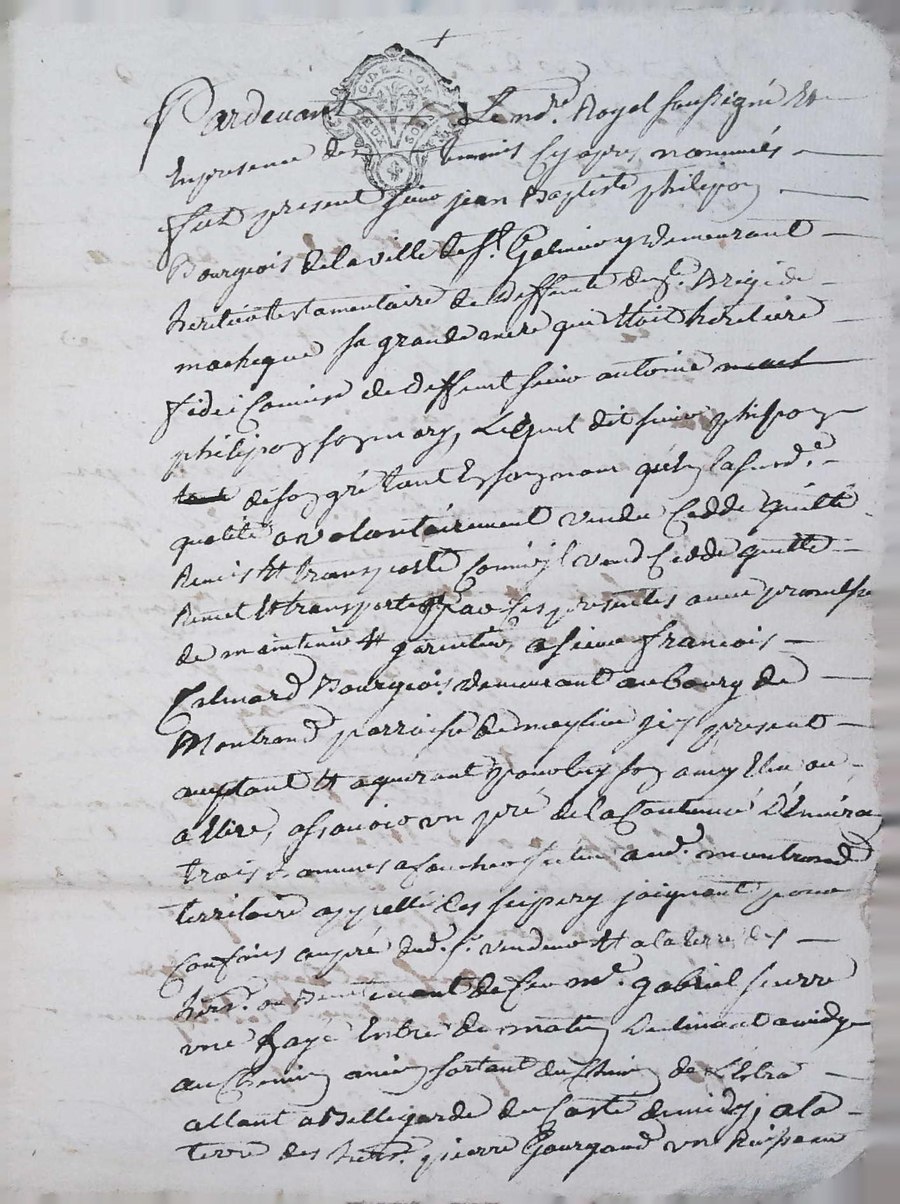 Pardevant Le no.re Royal soussigné et
En presence des temoins cy apres nommés
fut present sieur jean Baptiste philipon
Bourgeois de la ville de st. Galmier y demeurant
heritier testamentaire de deffunte de.lle Brigide
sa grande mere qui Etoit heritiere
fidei Comise de deffunt sieur antoine
philipon son mary, Lequel dit sieur philipon
de son gré tant En son nom qu'en la susd.e
qualité a volontairement vendu Cedde quitté
Remis Et transporté Comme il vend Cedde quitte
Remet Et transporte par ces presentes avec promesse
de maintenir Et garentir, a sieur francois
Bourgeois demeurant au bourg de
Montrond parroisse de meylieu icy present
acceptant Et aquerant pour luy son amy Elu ou
a Elire, assavoir un pré de la Contenue d'Environ
trois hommes a faucher situé aud. montrond
territoire appellé des joignant pour
Confins au pré dud. sr. vendeur Et a la terre des
hers. ou Bientenant de feu me. gabriel
une haye Entre de matin declinant a midy
au Chemin ancien sortant du Chemin de
allant a Bellegarde du Costé de midy, a la
terre des hers. pierre Gourgaud un Ruisseau